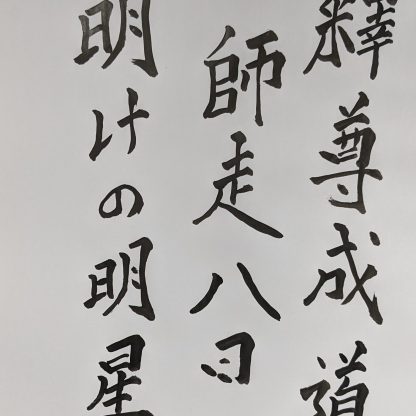 釋尊成道
師走八日
明けの明星